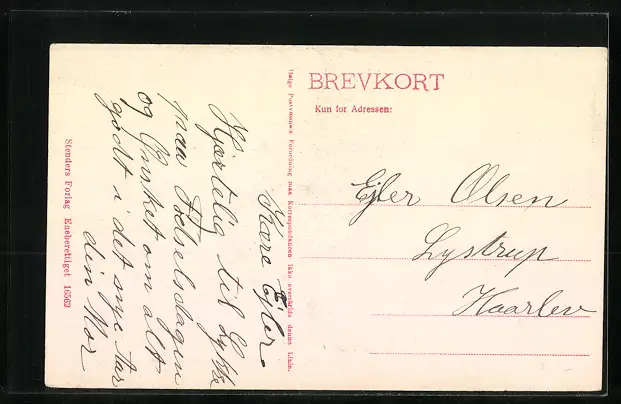 BREVKORT
Kun for Adressen:
Ejler Olsen
Lystrup
Haarlev
Ifølge Postvæsnets Forordning maa Korrespondancen ikke overskride denne Linie.
Kære Ejler
Hjærtelig til Lykke
paa Fødselsdagen
og Ønsket om alt
godt i det nye Aar
din Mor
Stenders Forlag Eneberettiget 16562